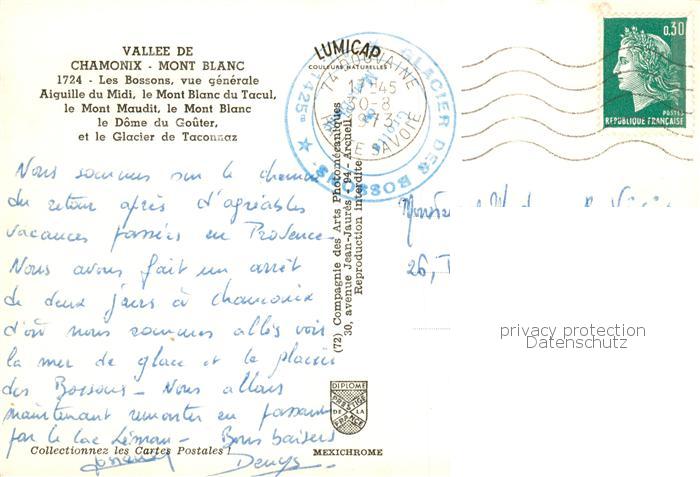 VALLEE DE
CHAMONIX - MONT BLANC
1724 - Les Bossons, vue générale
Aiguille du Midi, le Mont Blanc du Tacul,
le Mont Maudit, le Mont Blanc
le Dôme du Goûter,
et le Glacier de Taconnaz
LUMICAP
COULEURS NATURELLES
74 DOUVAINE
17-45
30-8
1973
HTE SAVOIE
GLACIER DES BOSSONS
1425m
0,30
POSTES
REPUBLIQUE FRANÇAISE
Nous sommes sur le chemin
du retour après d'agréables
vacances passées en Provence
Nous avons fait un arrêt
de deux jours à chamonix
d'où nous sommes allés voir
la mer de glace et le glacier
des Bossons - Nous allons
maintenant remonter en passant
par le lac Léman - Bons baisers
Denys
(72) Compagnie des Arts Photomécaniques
30, avenue Jean-Jaurès - 94 - Arcueil
Reproduction interdite
26,
privacy protection
Datenschutz
DIPLOME
PRESTIGE
DE LA
FRANCE
Collectionnez les Cartes Postales !
MEXICHROME